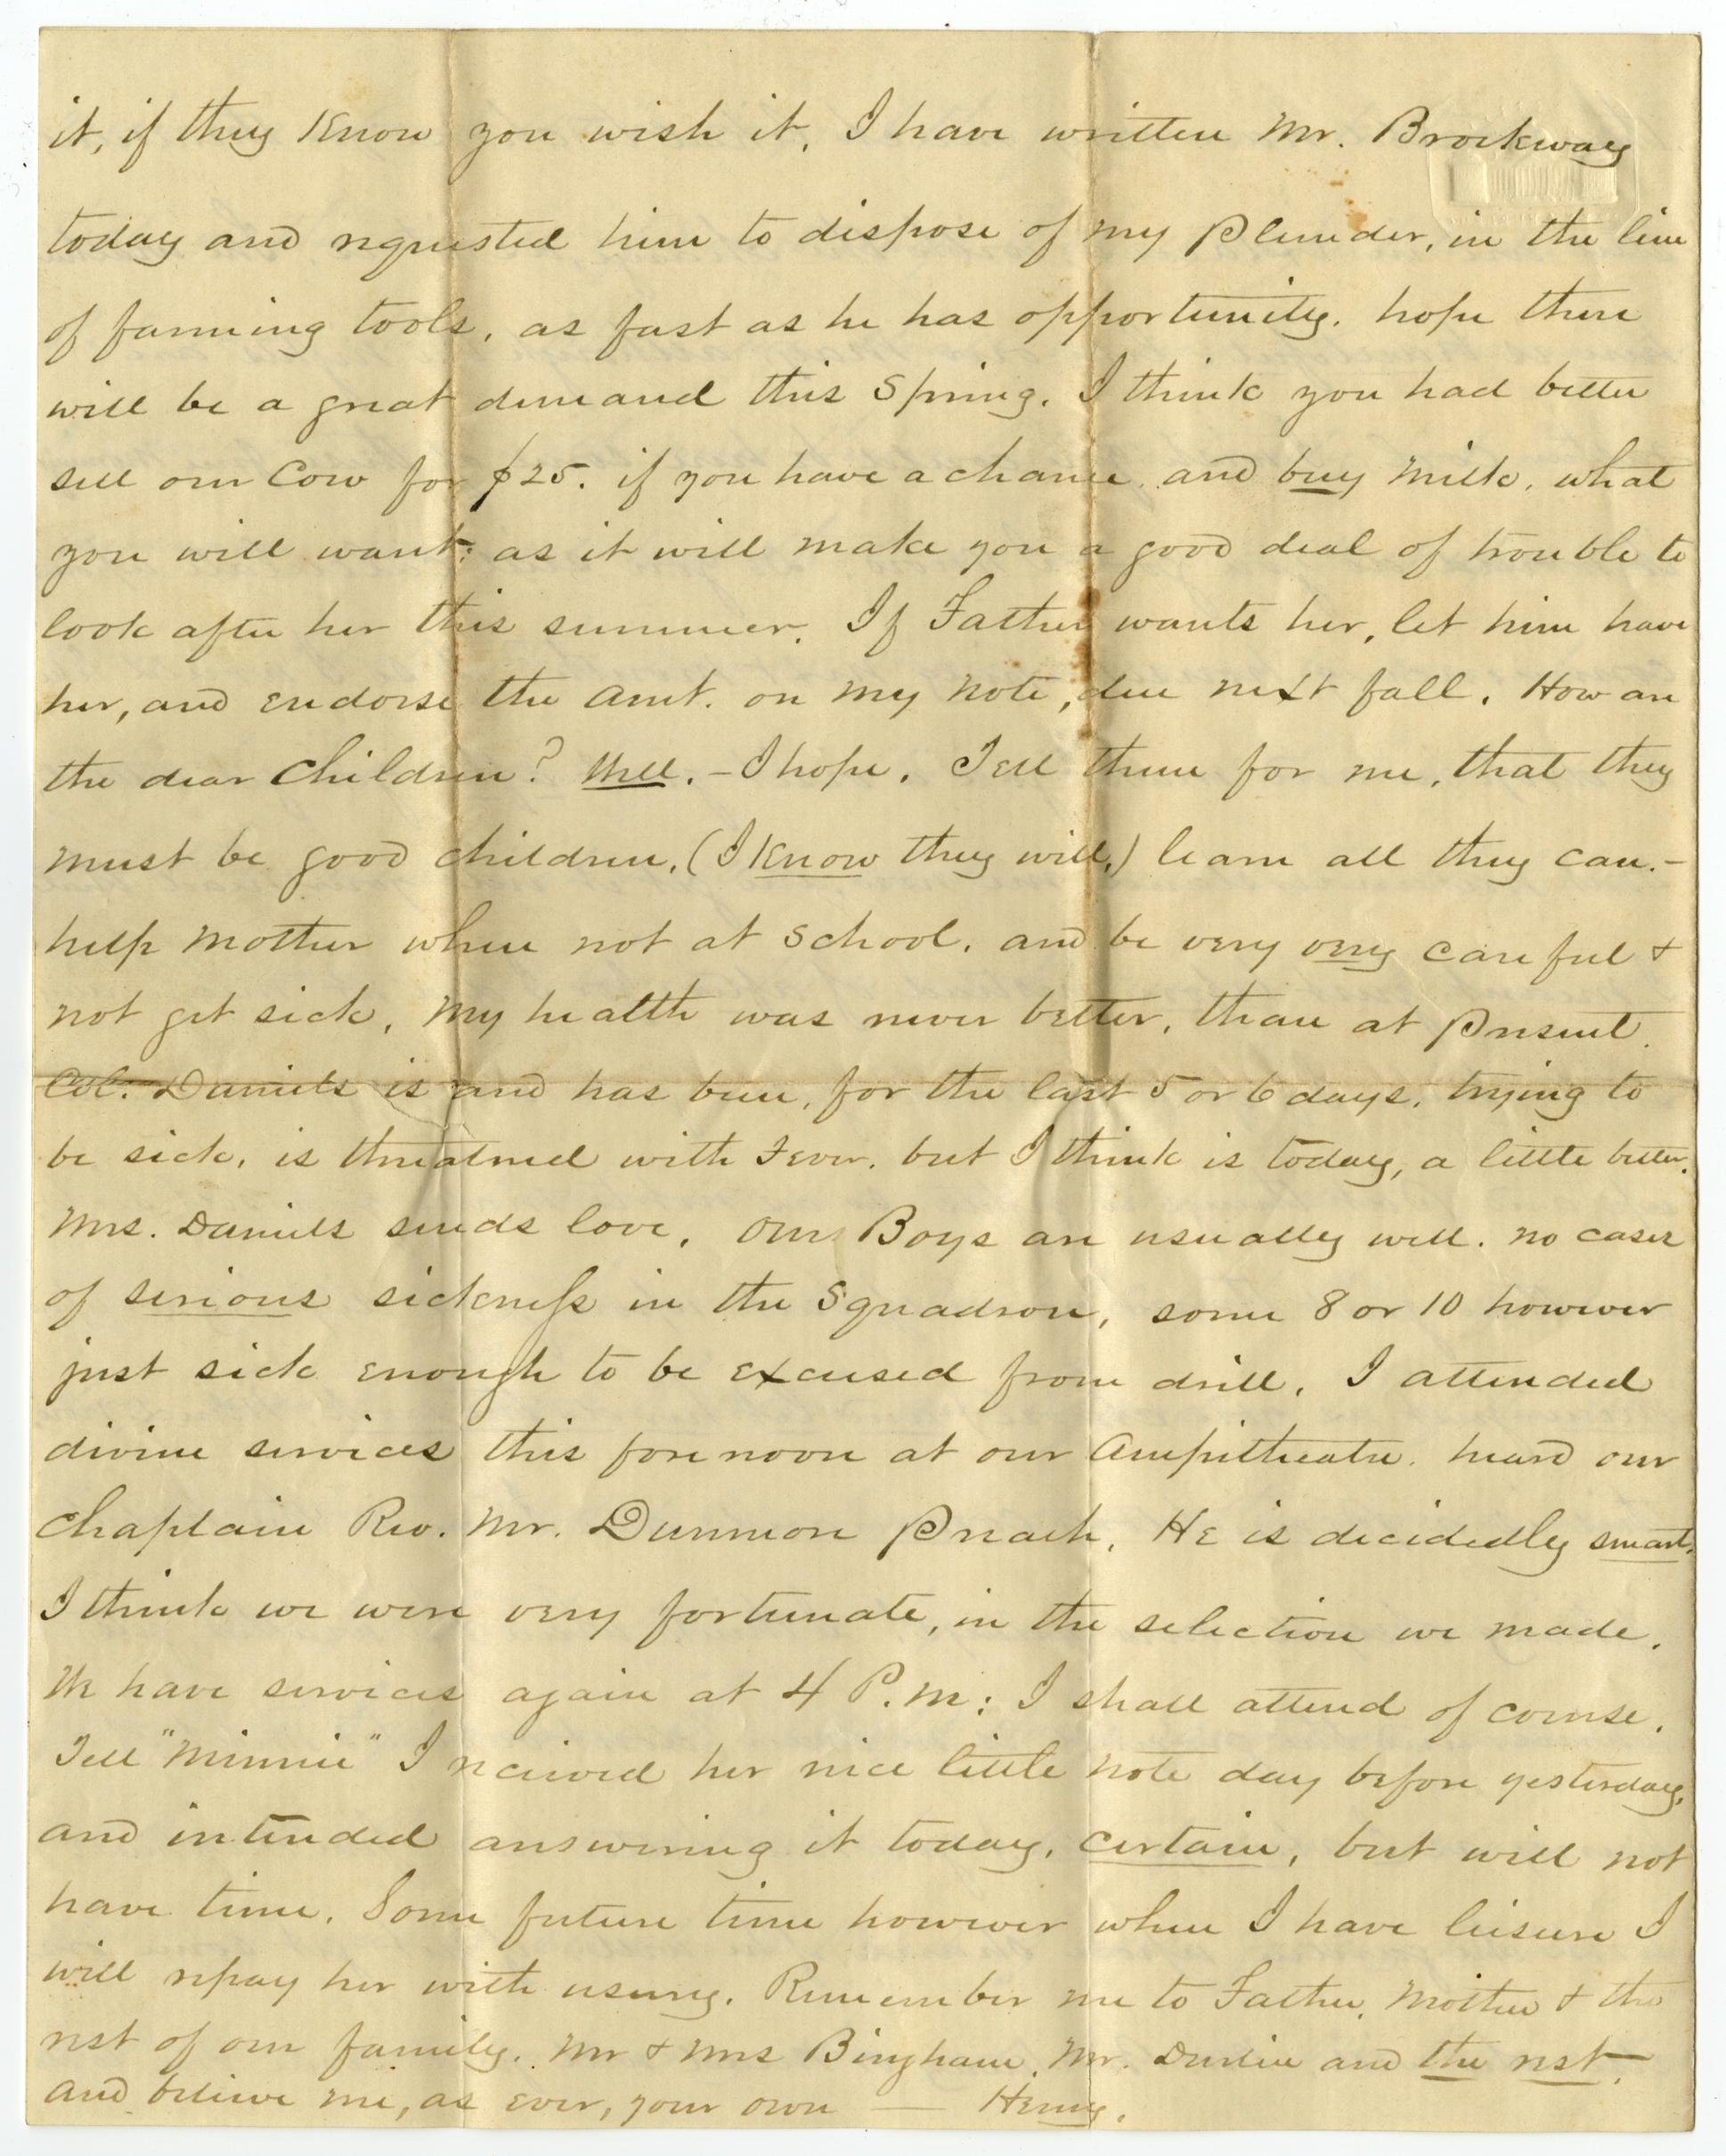 it, if they know you wish it. I have written Mr. Brockway
today and requested him to dispose of my Plunder, in the line
of farming tools, as fast as he has opportunity. hope there
will be a great demand this Spring. I think you had better
sell our Cow for $25. if you have a chance and buy milk, what
you will want: as it will make you a good deal of trouble to
look after her this summer. If Father wants her, let him have
her, and endorse the amt. on my note, due next fall. How are
the dear children? Well. - I hope. Tell them for me, that they
must be good children, (I know they will,) learn all they can. -
help mother when not at school, and be very very careful &
not get sick. My health was never better, than at Present.
Col. Daniels is and has been, for the last 5 or 6 days, trying to
be sick, is threatened with Fever, but I think is today, a little better.
Mrs. Daniels sends love. Our Boys are usually well. no cases
of serious sickness in the Squadron, some 8 or 10 however
just sick enough to be excused from drill. I attended
divine services this forenoon at our Ampitheatre. heard our
Chaplain Rev. Mr. Dunmore Preach. He is decidedly smart.
I think we were very fortunate, in the selection we made.
We have services again at 4 P.M: I shall attend of course.
Tell "Minnie" I received her nice little note day before yesterday,
and intended answering it today, certain, but will not
have time. Some future time however when I have leisure I
will repay her with usury. Remember me to Father, Mother & the
rest of our family. Mr & Mrs Bingham, Mr. and the rest.
and believe me, as ever, your own — Henry.